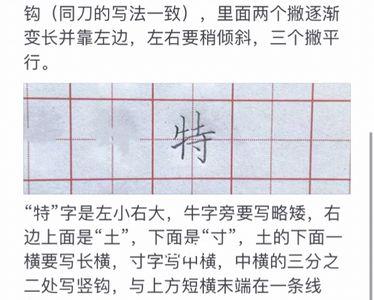 钩（同刀的写法一致），里面两个撇逐渐
变长并靠左边，左右要稍倾斜，三个撇平
行。
特
“特”字是左小右大，牛字旁要写略矮，右
边上面是“土”，下面是“寸”，土的下面一
横要写长横，寸字写中横，中横的三分之
二处写竖钩，与上方短横末端在一条线